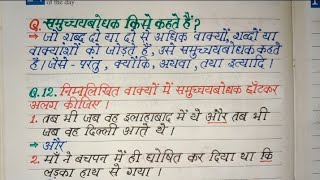 of the day
Q. समुच्चयबोधक किसे कहते हैं?
→ जो शब्द दो या दो से अधिक वाक्यों, शब्दों या
वाक्यांशों को जोड़ते हैं, उसे समुच्चयबोधक कहते
हैं। जैसे - परंतु, क्योंकि, अथवा, तथा इत्यादि।
Q.12. निम्नलिखित वाक्यों में समुच्चयबोधक छाँटकर
अलग कीजिए।
1. तब भी जब वह इलाहाबाद में थे और तब भी
जब वह दिल्ली आते थे।
→ और
2. माँ ने बचपन में ही घोषित कर दिया था कि
लड़का हाथ से गया।